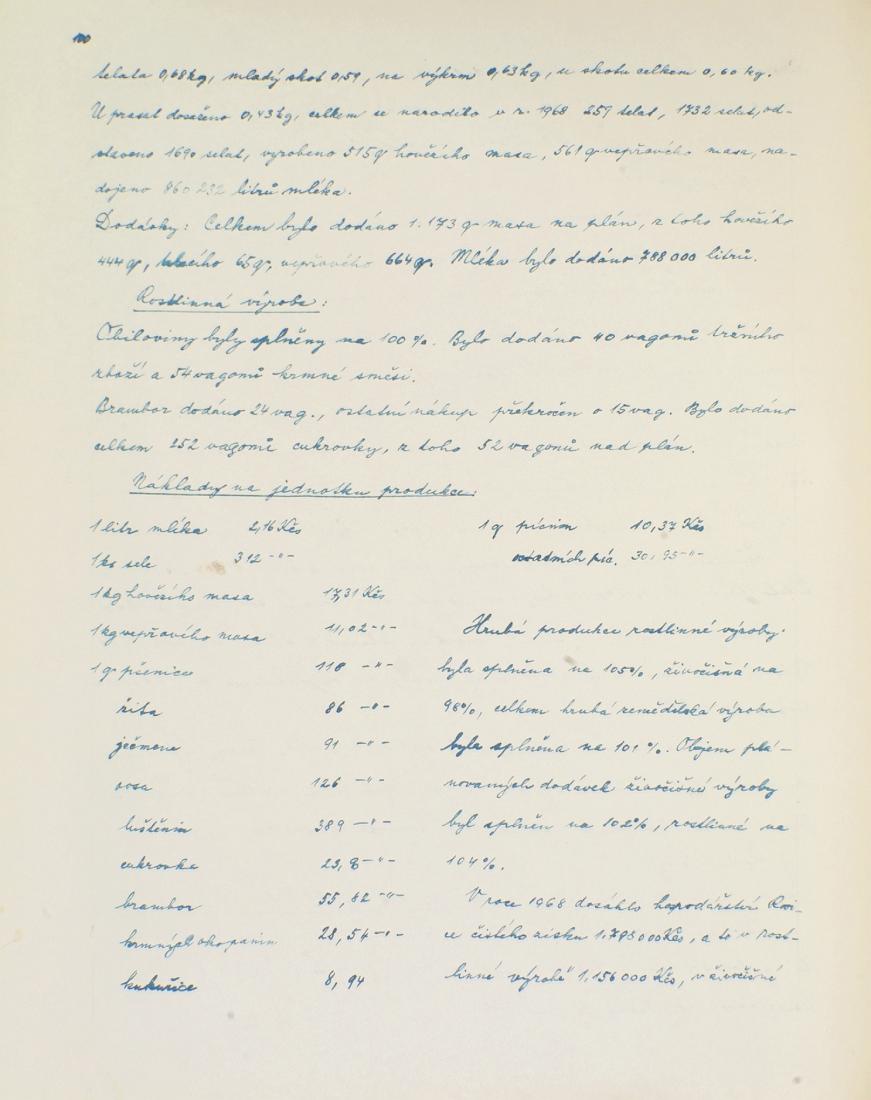 100
telata 0,68kg, mladý skot 0,59, na výkrm 0,63kg, u skotu celkem 0,60 kg.
U prasat dosaženo 0,43kg, celkem se narodilo v r. 1968 259 telat, 1732 selat, od-
staveno 1690 selat, vyrobeno 515q hovězího masa, 561 q vepřového masa, na-
dojeno 860 232 litrů mléka.
Dodávky: Celkem bylo dodáno 1.173 q masa na plán, z toho hovězího
444q, telecího 65q, vepřového 664q. Mléka bylo dodáno 788 000 litrů.
Rostlinná výroba:
Obiloviny byly splněny na 100%. Bylo dodáno 40 vagonů tržního
zboží a 54 vagonů krmné směsi.
Brambor dodáno 24 vag., ostatní nákup překročen o 15 vag. Bylo dodáno
celkem 252 vagonů cukrovky, z toho 52 vagonů nad plán.
Náklady na jednotku produkce:
1 litr mléka 2,16 Kčs
1 ks sele 312 -"-
1 kg hovězího masa 17,31 Kčs
1 kg vepřového masa 11,02 -"-
1 q pšenice 118 -"-
žita 86 -"-
ječmene 91 -"-
ovsa 126 -"-
luštěnin 389 -"-
cukrovka 23,8 -"-
brambor 55,82 -"-
krmných okopanin 28,54 -"-
kukuřice 8,94
1 q pícnin 10,37 Kčs
ostatních píc. 30,95 -"-
Hrubá produkce rostlinné výroby
byla splněna na 105%, živočišná na
98%, celkem hrubá zemědělská výroba
byla splněna na 101%. Objem plá-
novaných dodávek živočišné výroby
byl splněn na 102%, rostlinné na
104%.
V roce 1968 dosáhlo hospodářství Rosi-
ce čistého zisku 1.783 000 Kčs, a to v rost-
linné výrobě 1,156 000 Kčs, v živočišné